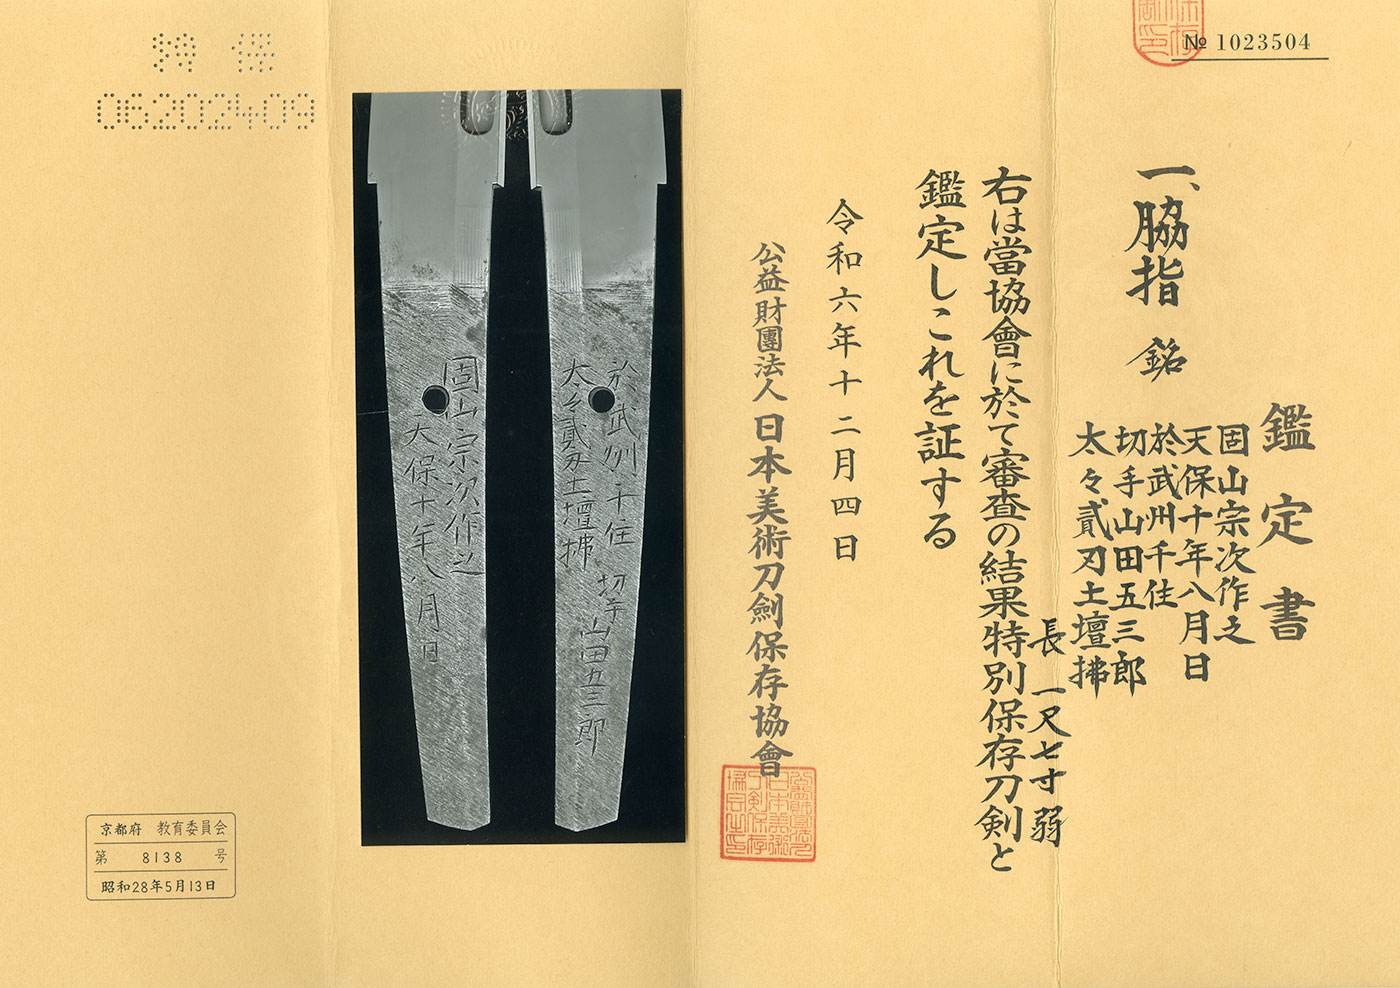 № 1023504
鑑定書
一、脇指 銘
固山宗次作之
天保十年八月日
於武州千住
切手山田五三郎
太々貳刃土壇拂
長 一尺七寸弱
右は當協會に於て審査の結果特別保存刀剣と
鑑定しこれを証する
令和六年十二月四日
公益財團法人 日本美術刀劍保存協會
於武州千住 切手山田五三郎
太々貳刃土壇拂
固山宗次作之
天保十年八月日
06202409
京都府 教育委員会
第 8138 号
昭和28年5月13日